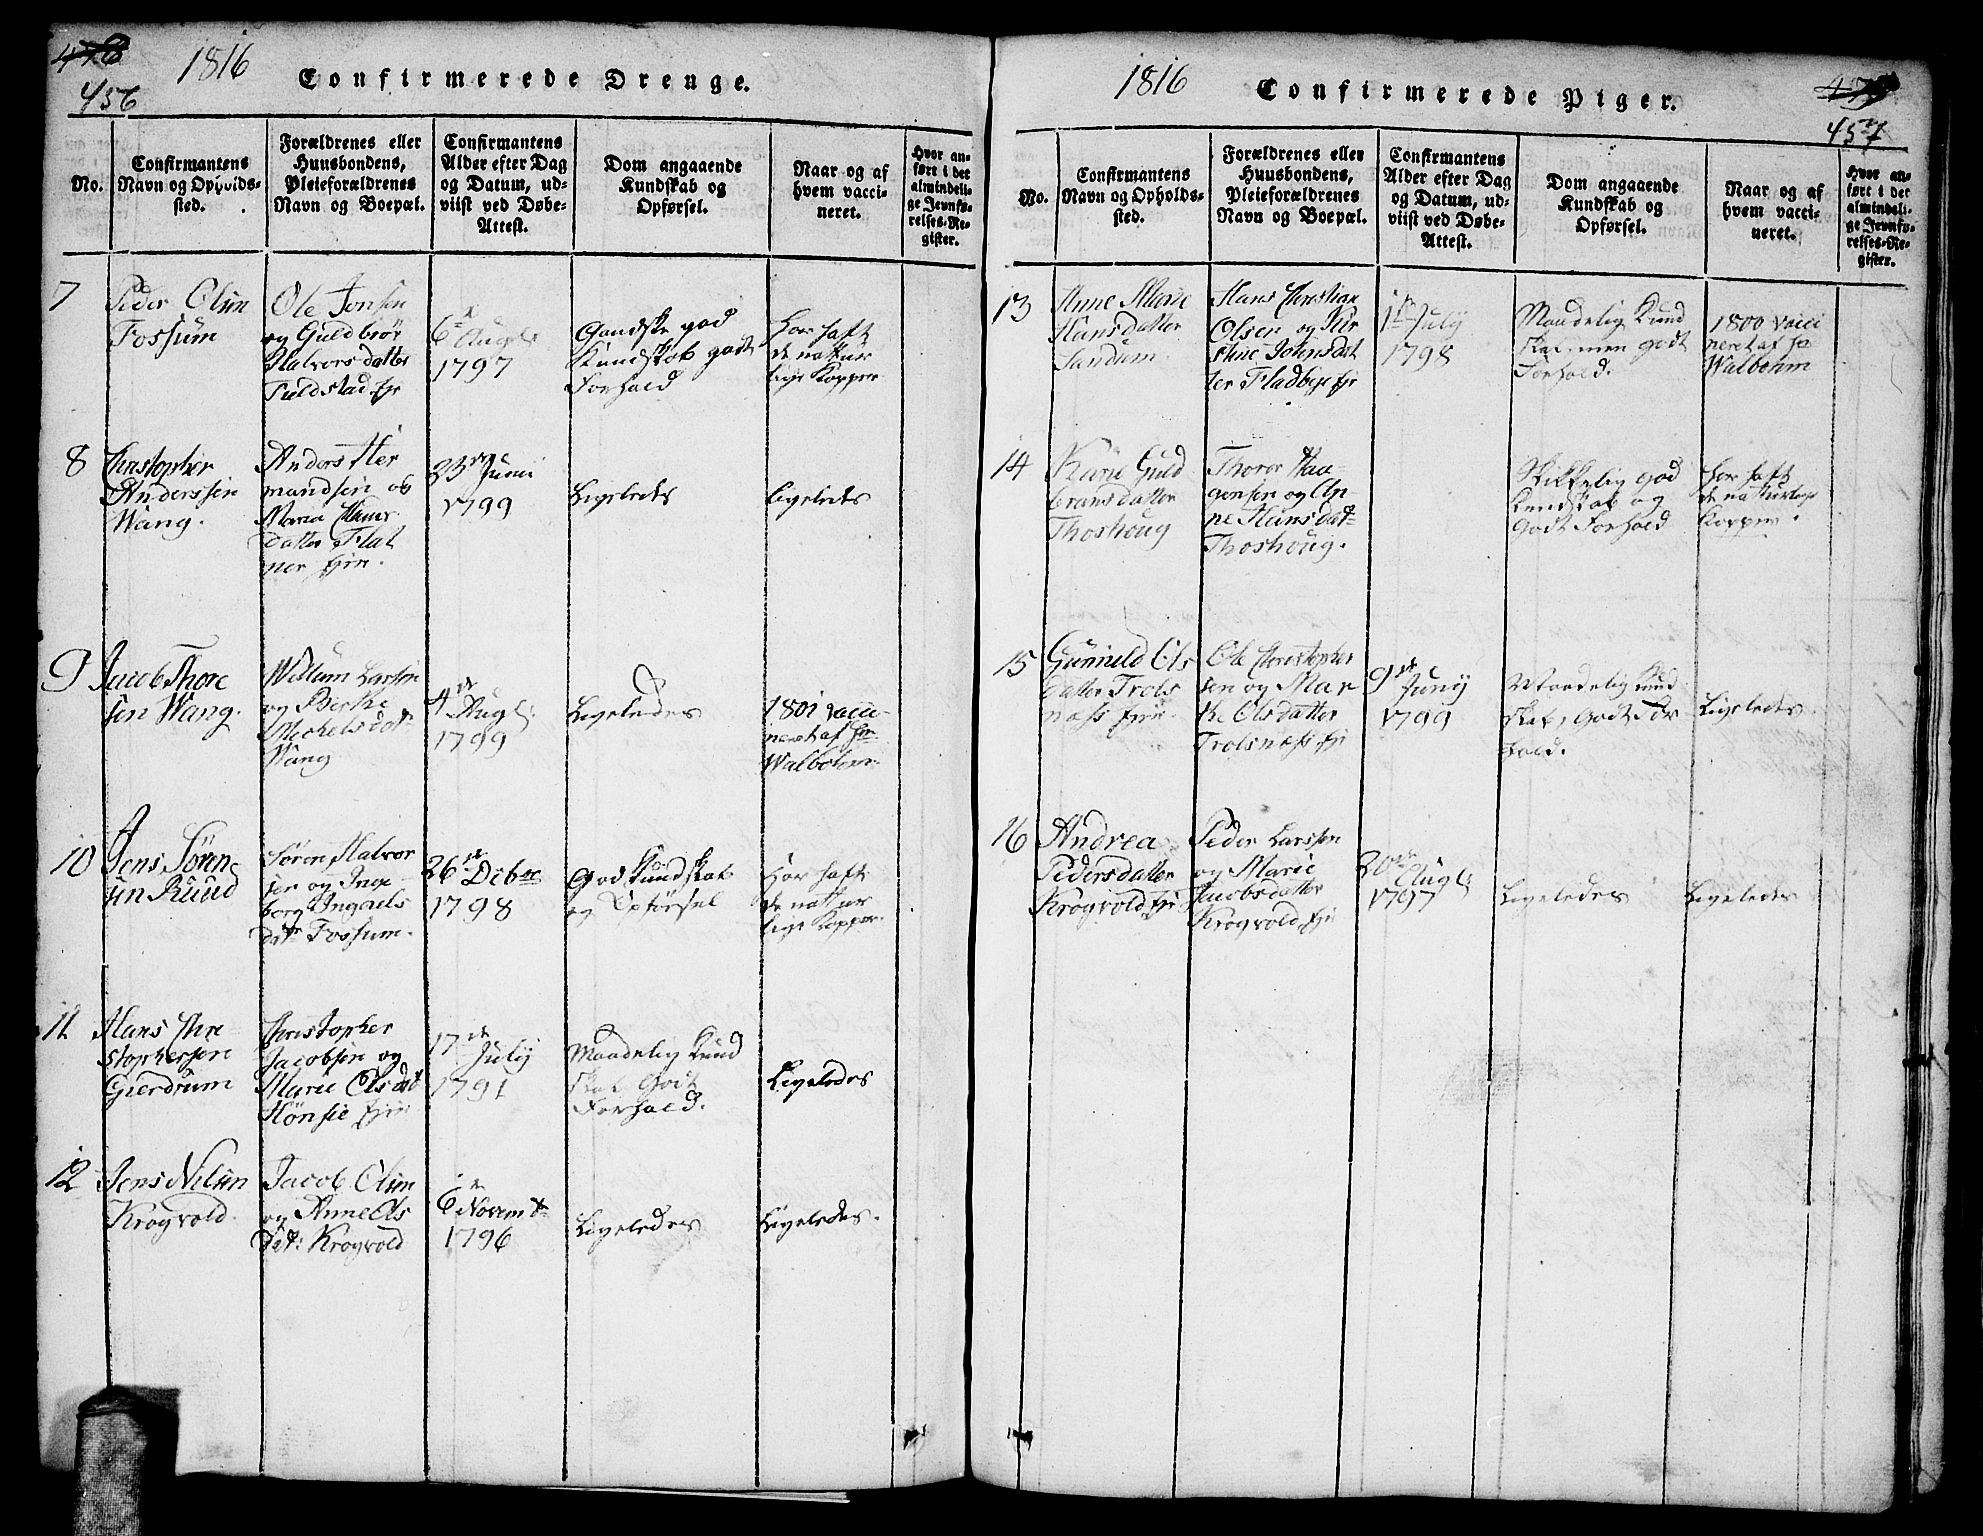 478
456
1816
Confirmerede Drenge.
No.
Confirmantens
Navn og Opholds-
sted.
Forældrenes eller
Huusbondens,
Pleieforældrenes
Navn og Boepæl.
Confirmantens
Alder efter Dag
og Datum, ud-
viist ved Døbe-
Attest.
Dom angaaende
Kundskab og
Opførsel.
Naar og af
hvem vacci-
neret.
Hvor an-
ført i det
almindeli-
ge Jevnfø-
relses-Re-
gister.
7
Peder Olsen
Fossum
Ole Jensen
og Guldbrør
Halvors datter
Fuldstad ejr
6te Augs
1797
Gandske god
Kundskab godt
Forhold
Har haft
de natur
lige Kopper
8
Christopher
Anderssen
Wang.
Anders Her
mandsen og
Maria Hans
datter Flat
ner ejrn.
23de Juni
1799
Ligeledes
Ligeledes
9
Jacob Thore
sen Wang.
Willum Larssen
og Berthe
Mickels dat
Wang
4de Augs:
1799
Ligeledes
1801 vacci-
neret af Hr
Walbohm
10
Jens Søren
sen Ruud
Søren Halvor
sen og Inge
borg Ingaels
datr Fossum.
26de Debr
1798
God Kundskab
og Opførsel
Har haft
de natur
lige Kopper
11
Hans Chri
stophersen
Gierdrum
Christopher
Jacobsen og
Marie Olsdat
Hønsie ejrn
17de July
1791
Maadelig Kund
skab Godt
Forhold.
Ligeledes
12
Jens Nilsen
Krogvold
Jacob Olsen
og Anne Ols
dat: Krogvold
6te Novembr
1796
Ligeledes
Ligeledes.
1816
Confirmerede Piger.
479
457
No.
Confirmantens
Navn og Opholds-
sted.
Forældrenes eller
Huusbondens,
Pleieforældrenes
Navn og Boepæl.
Confirmantens
Alder efter Dag
og Datum, ud-
viist ved Døbe-
Attest.
Dom angaaende
Kundskab og
Opførsel.
Naar og af
hvem vacci-
neret.
Hvor an-
ført i det
almindeli-
ge Jevnfø-
relses-Re-
gister.
13
Anne Marie
Hansdatter
Sandum
Hans Christian
Olsen og Kir
stine Johnsdat
ter Fladbye ejr
1te July
1798
Maadelig Kund
skab, men godt
Forhold.
1800 vacci
neret af Hr
Walbohm
14
Karie Guld
bransdatter
Thoshoug
Thorer Haa-
gensen og An
ne Hansdat
Thoshoug.
Skikkelig god
Kundskab og
Godt Forhold
Har haft
de naturlige
Kopper.
15
Gunnild Ols
datter Trols
næss ejrn
Ole Christopher
sen og Mar
the Olsdatter
Trolsnæss ejr
9de Juny
1799
Maadelig Kund
skab, Godt For
hold.
Ligeledes
16
Andrea
Pedersdatter
Krogvold ejr
Peder Larssen
og Marie
Jacobsdatter
Krogvold ejr
20de Augs
1797
Ligeledes
Ligeledes